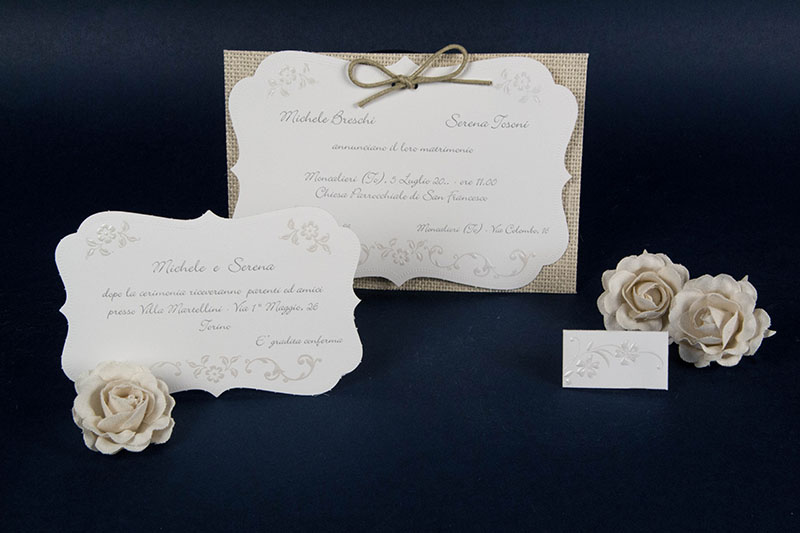 Michele Breschi Serena Tosoni
annunciano il loro matrimonio
Moncalieri (To), 5 Luglio 20.. - ore 11.00
Chiesa Parrocchiale di San Francesco
Moncalieri (To) - Via Colombo, 18
Michele e Serena
dopo la cerimonia riceveranno parenti ed amici
presso Villa Martellini - Via 1° Maggio, 26
Torino
E' gradita conferma